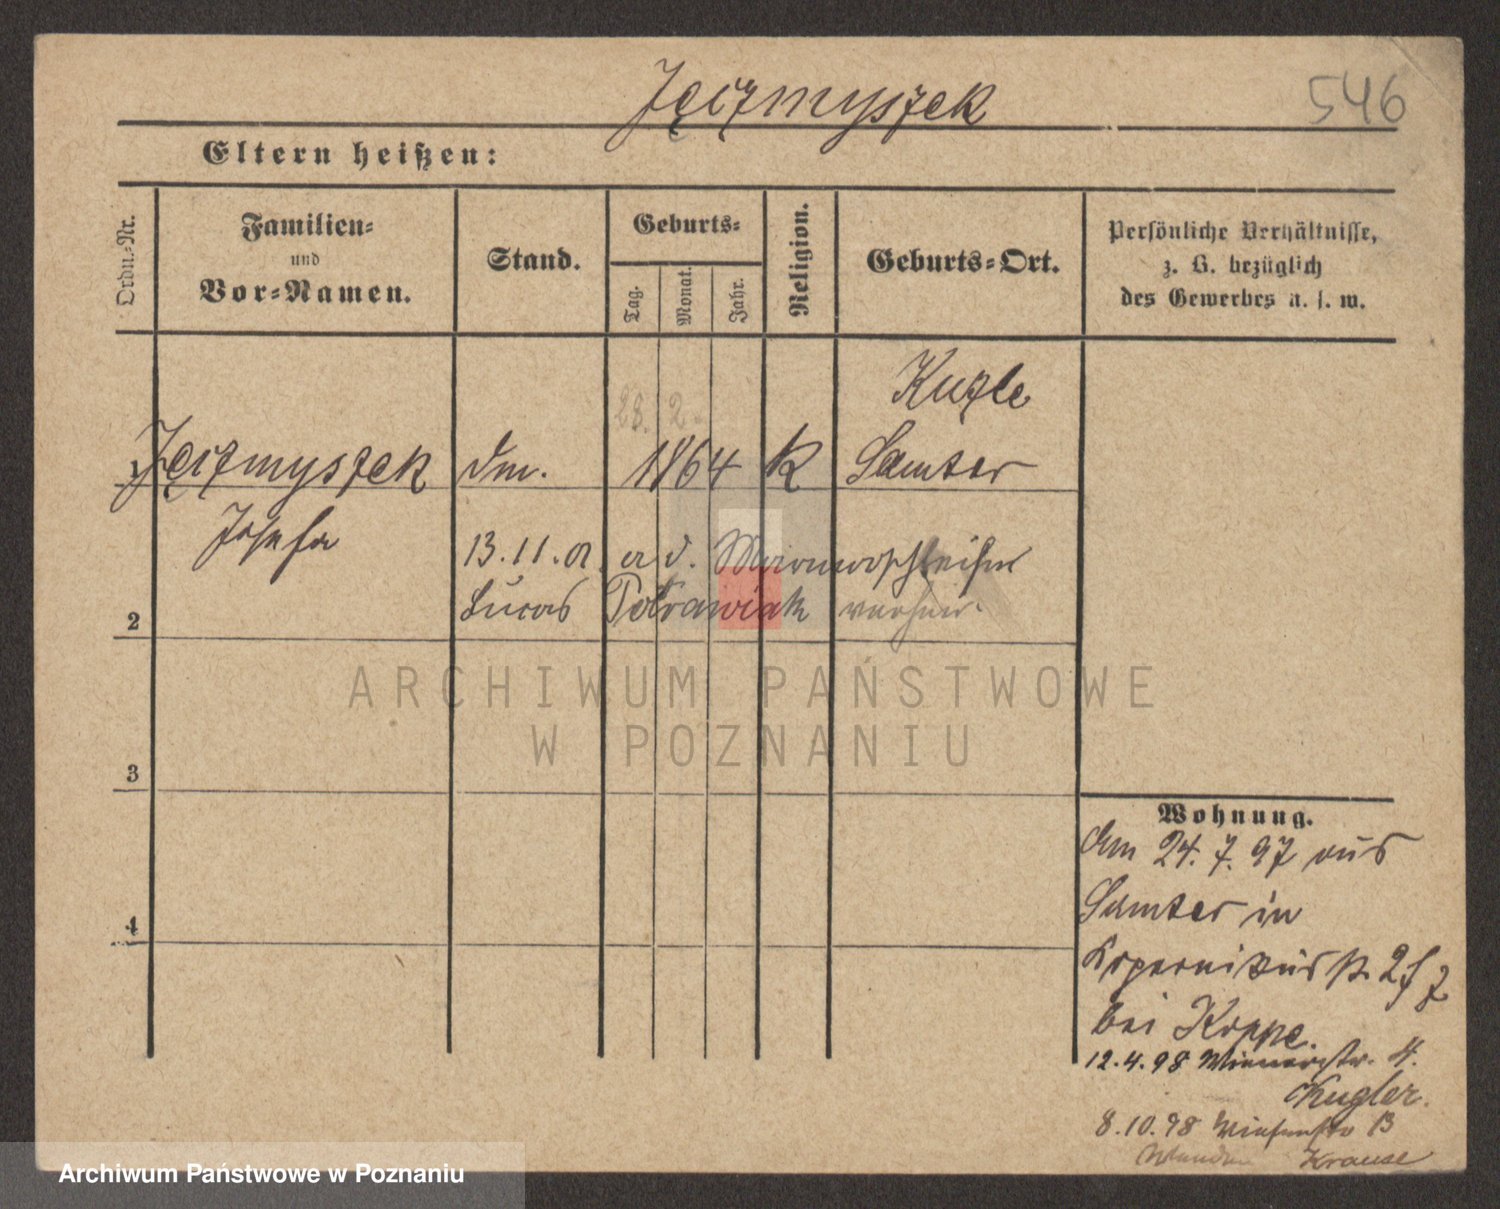 Jęczmyszek
546
Eltern heißen:
Ordn.-Nr.
Familien-
und
Vor-Namen.
Stand.
Geburts-
Tag.
Monat.
Jahr.
Religion.
Geburts-Ort.
Persönliche Verhältnisse,
z. B. bezüglich
des Gewerbes u. s. w.
Kuzle
28. 2.
1 Jęczmyszek 1864 K Samter
Josefa
13.11.01. a. d.
2 Lucas Potrawiak
ARCHIWUM PAŃSTWOWE
W POZNANIU
3
Wohnung.
Am 24.7.97 aus
Samter in
4
Kopernikusstr. 2
bei Koppe.
12.4.98 Wienerstr. 4.
Kugler.
8.10.98 Wiesenstr 13
Krause
Archiwum Państwowe w Poznaniu